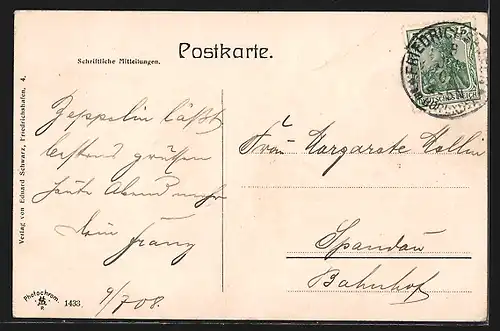 Postkarte.
Schriftliche Mitteilungen.
Zeppelin läßt
bestens grüßen
heute Abend mehr
dein Franz
9/7 08.
Frau Margarete
Spandau
Bahnhof
Verlag von Eduard Schwarz, Friedrichshafen. 4.
Photochrom.
1433